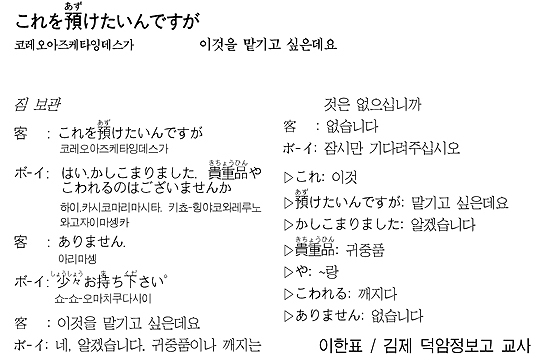 これを預けたいんですが
あず
코레오아즈케타잉데스가 이것을 맡기고 싶은데요
짐 보관
客 : これを預けたいんですが
あず
코레오아즈케타잉데스가
ボーイ: はい,かしこまりました. 貴重品や
きちょうひん
こわれるのはございませんか
하이,카시코마리마시타. 키쵸-힝야코와레루노
와고자이마셍카
客 : ありません.
아리마셍
ボーイ: 少々お持ち下さい。
しょうしょう ま くだ
쇼-쇼-오마치쿠다사이
客 : 이것을 맡기고 싶은데요
ボーイ: 네, 알겠습니다. 귀중품이나 깨지는
것은 없으십니까
客 : 없습니다
ボーイ: 잠시만 기다려주십시오
▷これ: 이것
▷預けたいんですが: 맡기고 싶은데요
あず
▷かしこまりました: 알겠습니다
▷貴重品: 귀중품
きちょうひん
▷や: ~랑
▷こわれる: 깨지다
▷ありません: 없습니다
이한표 / 김제 덕암정보고 교사